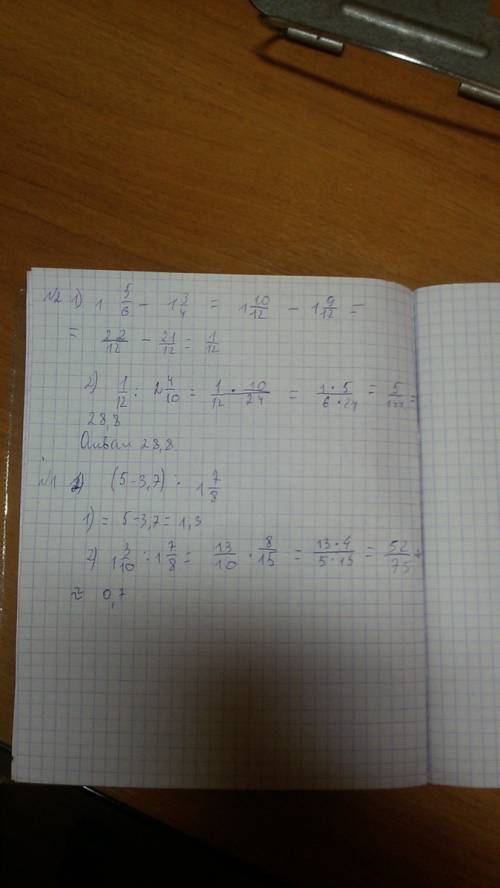 №2 1) 1 5/6 - 1 3/4 = 1 10/12 - 1 9/12 =
= 22/12 - 21/12 = 1/12
2) 1/12 : 2 4/10 = 1/12 * 10/24 = 1*5/6*24 = 5/144 =
28,8
28,8
№1 (5-3,7) : 1 7/8
1) = 5-3,7 = 1,3
2) 1 3/10 : 1 7/8 = 13/10 * 8/15 = 13*4/5*15 = 52/75
≈ 0,7